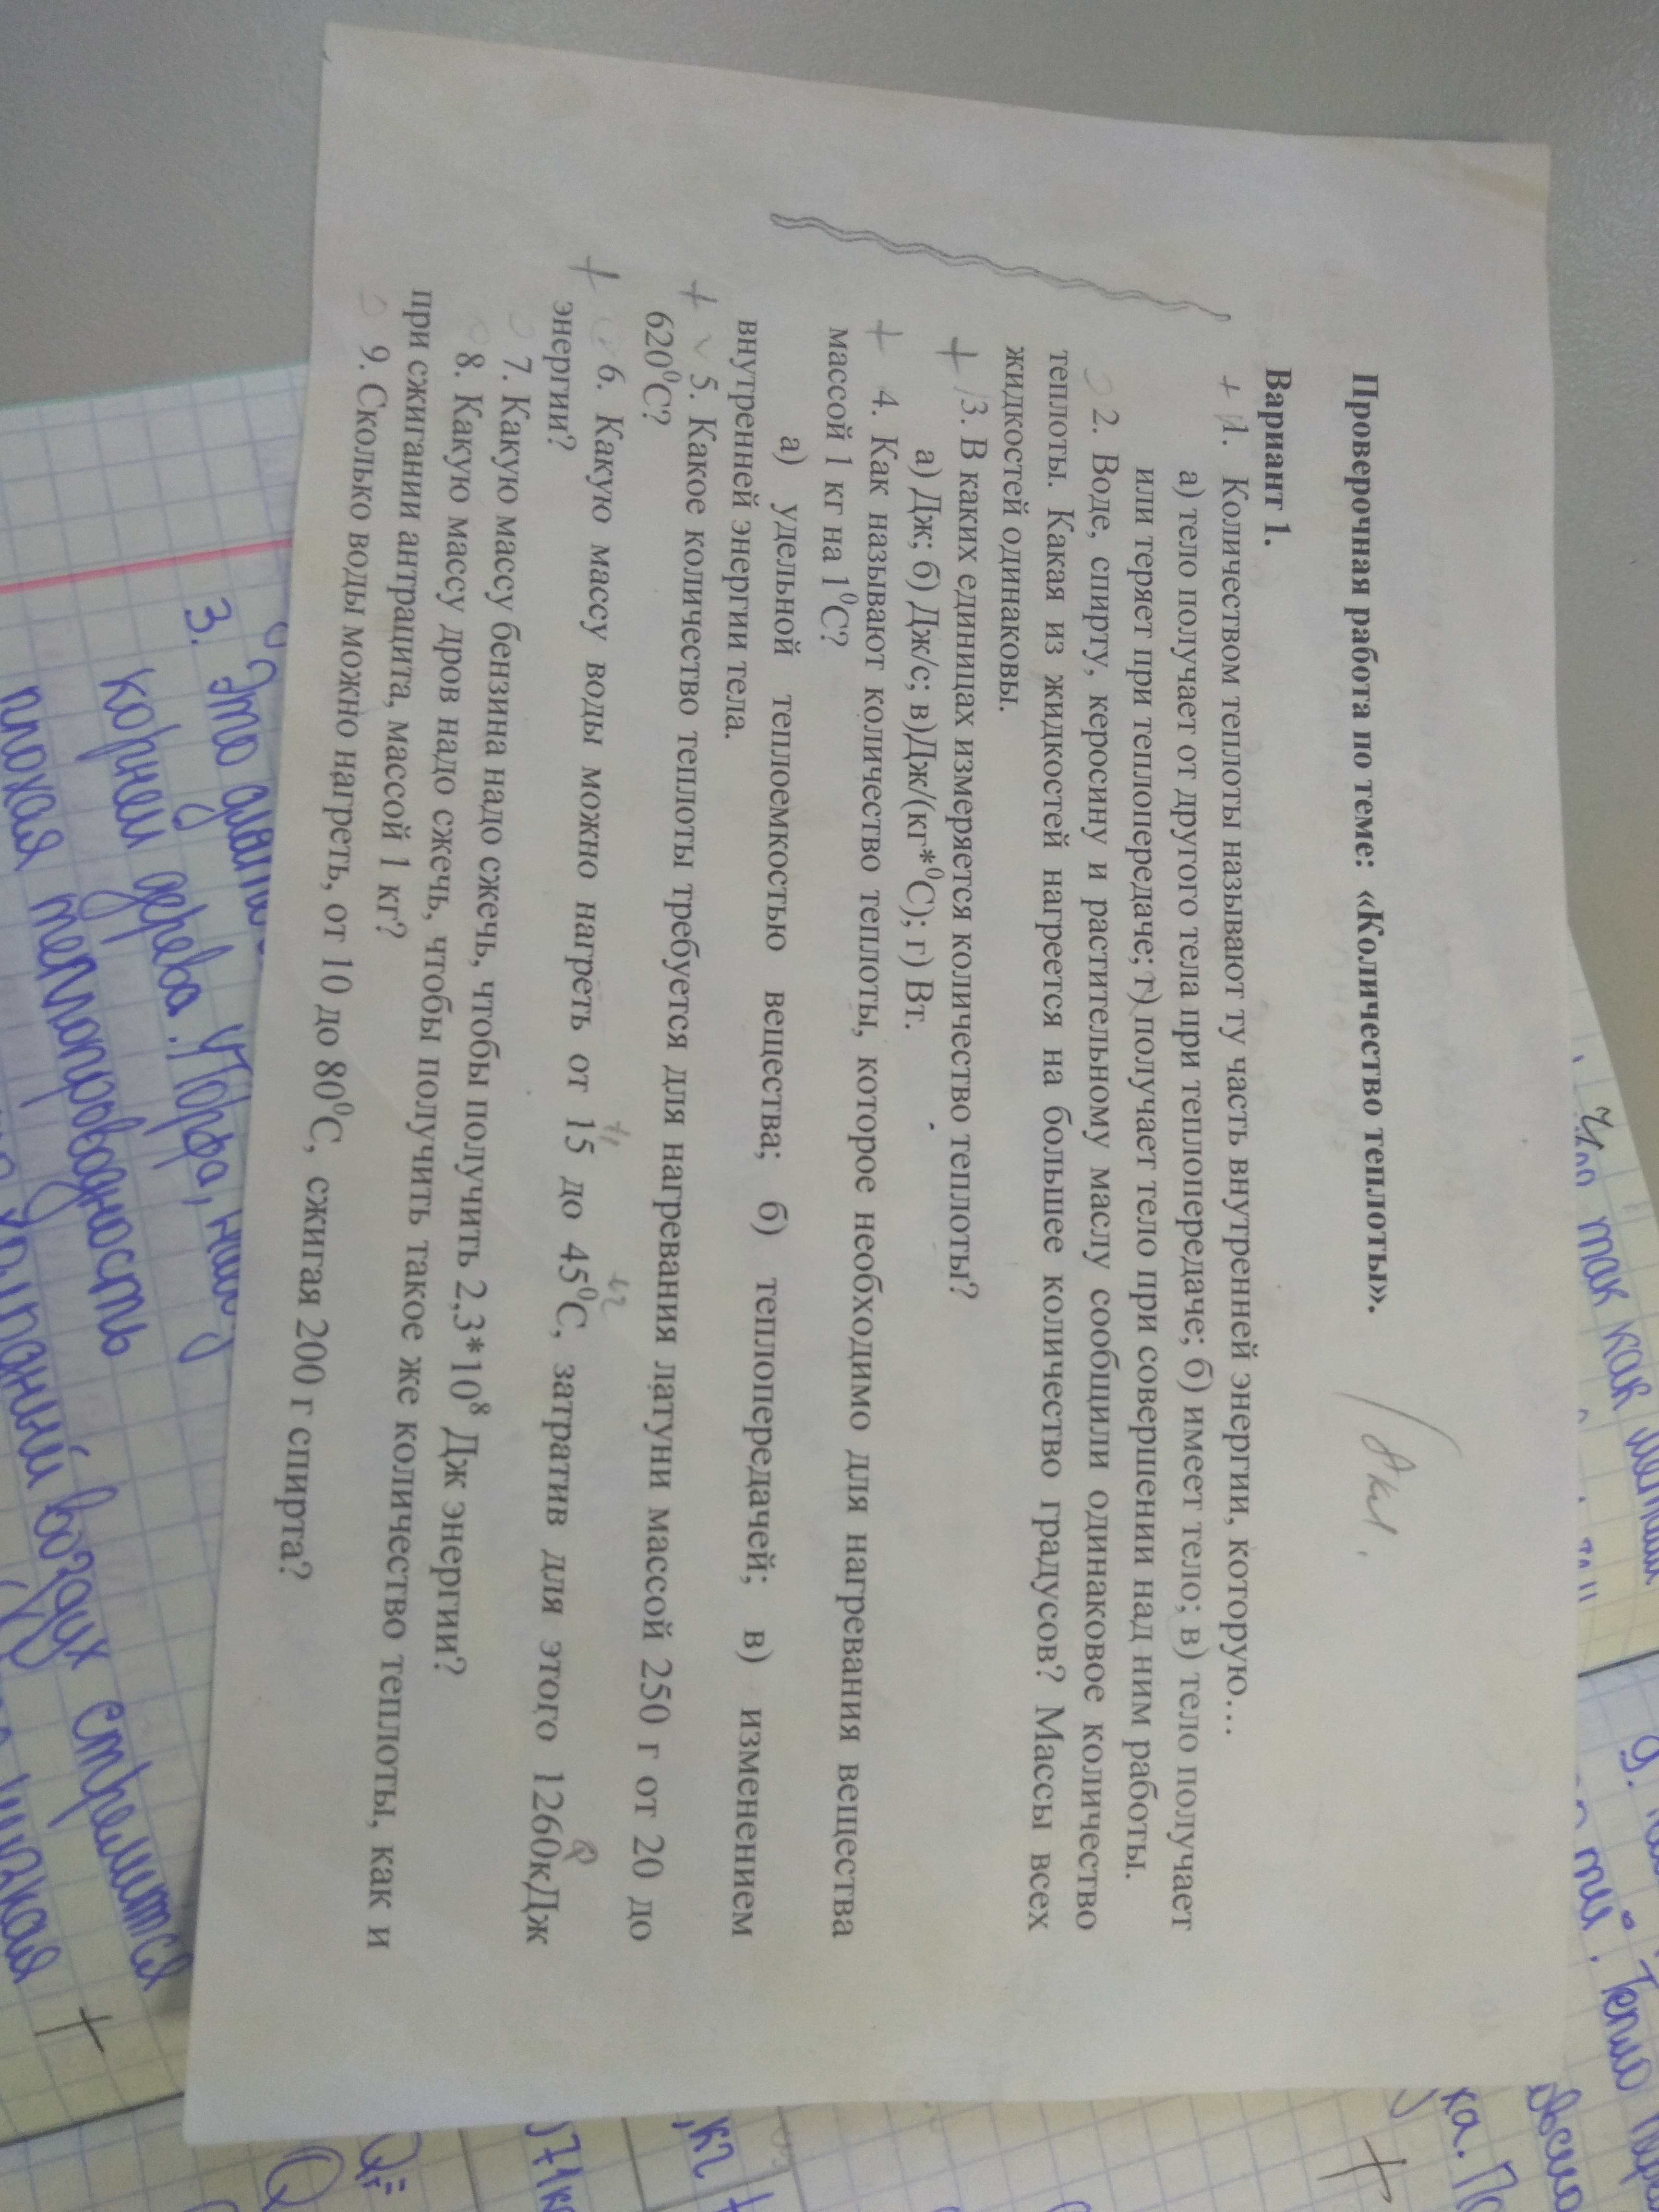 Проверочная работа по теме: «Количество теплоты».
Вариант 1.
+ 1. Количеством теплоты называют ту часть внутренней энергии, которую…
а) тело получает от другого тела при теплопередаче; б) имеет тело; в) тело получает
или теряет при теплопередаче; г) получает тело при совершении над ним работы.
2. Воде, спирту, керосину и растительному маслу сообщили одинаковое количество
теплоты. Какая из жидкостей нагреется на большее количество градусов? Массы всех
жидкостей одинаковы.
+ 3. В каких единицах измеряется количество теплоты?
а) Дж; б) Дж/с; в)Дж/(кг*⁰С); г) Вт.
+ 4. Как называют количество теплоты, которое необходимо для нагревания вещества
массой 1 кг на 1⁰С?
а) удельной теплоемкостью вещества; б) теплопередачей; в) изменением
внутренней энергии тела.
+ 5. Какое количество теплоты требуется для нагревания латуни массой 250 г от 20 до
620⁰С?
t₁ t₂ Q
+ 6. Какую массу воды можно нагреть от 15 до 45⁰С, затратив для этого 1260кДж
энергии?
7. Какую массу бензина надо сжечь, чтобы получить 2,3*10⁸ Дж энергии?
8. Какую массу дров надо сжечь, чтобы получить такое же количество теплоты, как и
при сжигании антрацита, массой 1 кг?
9. Сколько воды можно нагреть, от 10 до 80⁰С, сжигая 200 г спирта?
так как
9.
Тепло
ка.
кг
3. Это
корней дерева. Торф,
плохая теплопроводность
воздух стремится
+